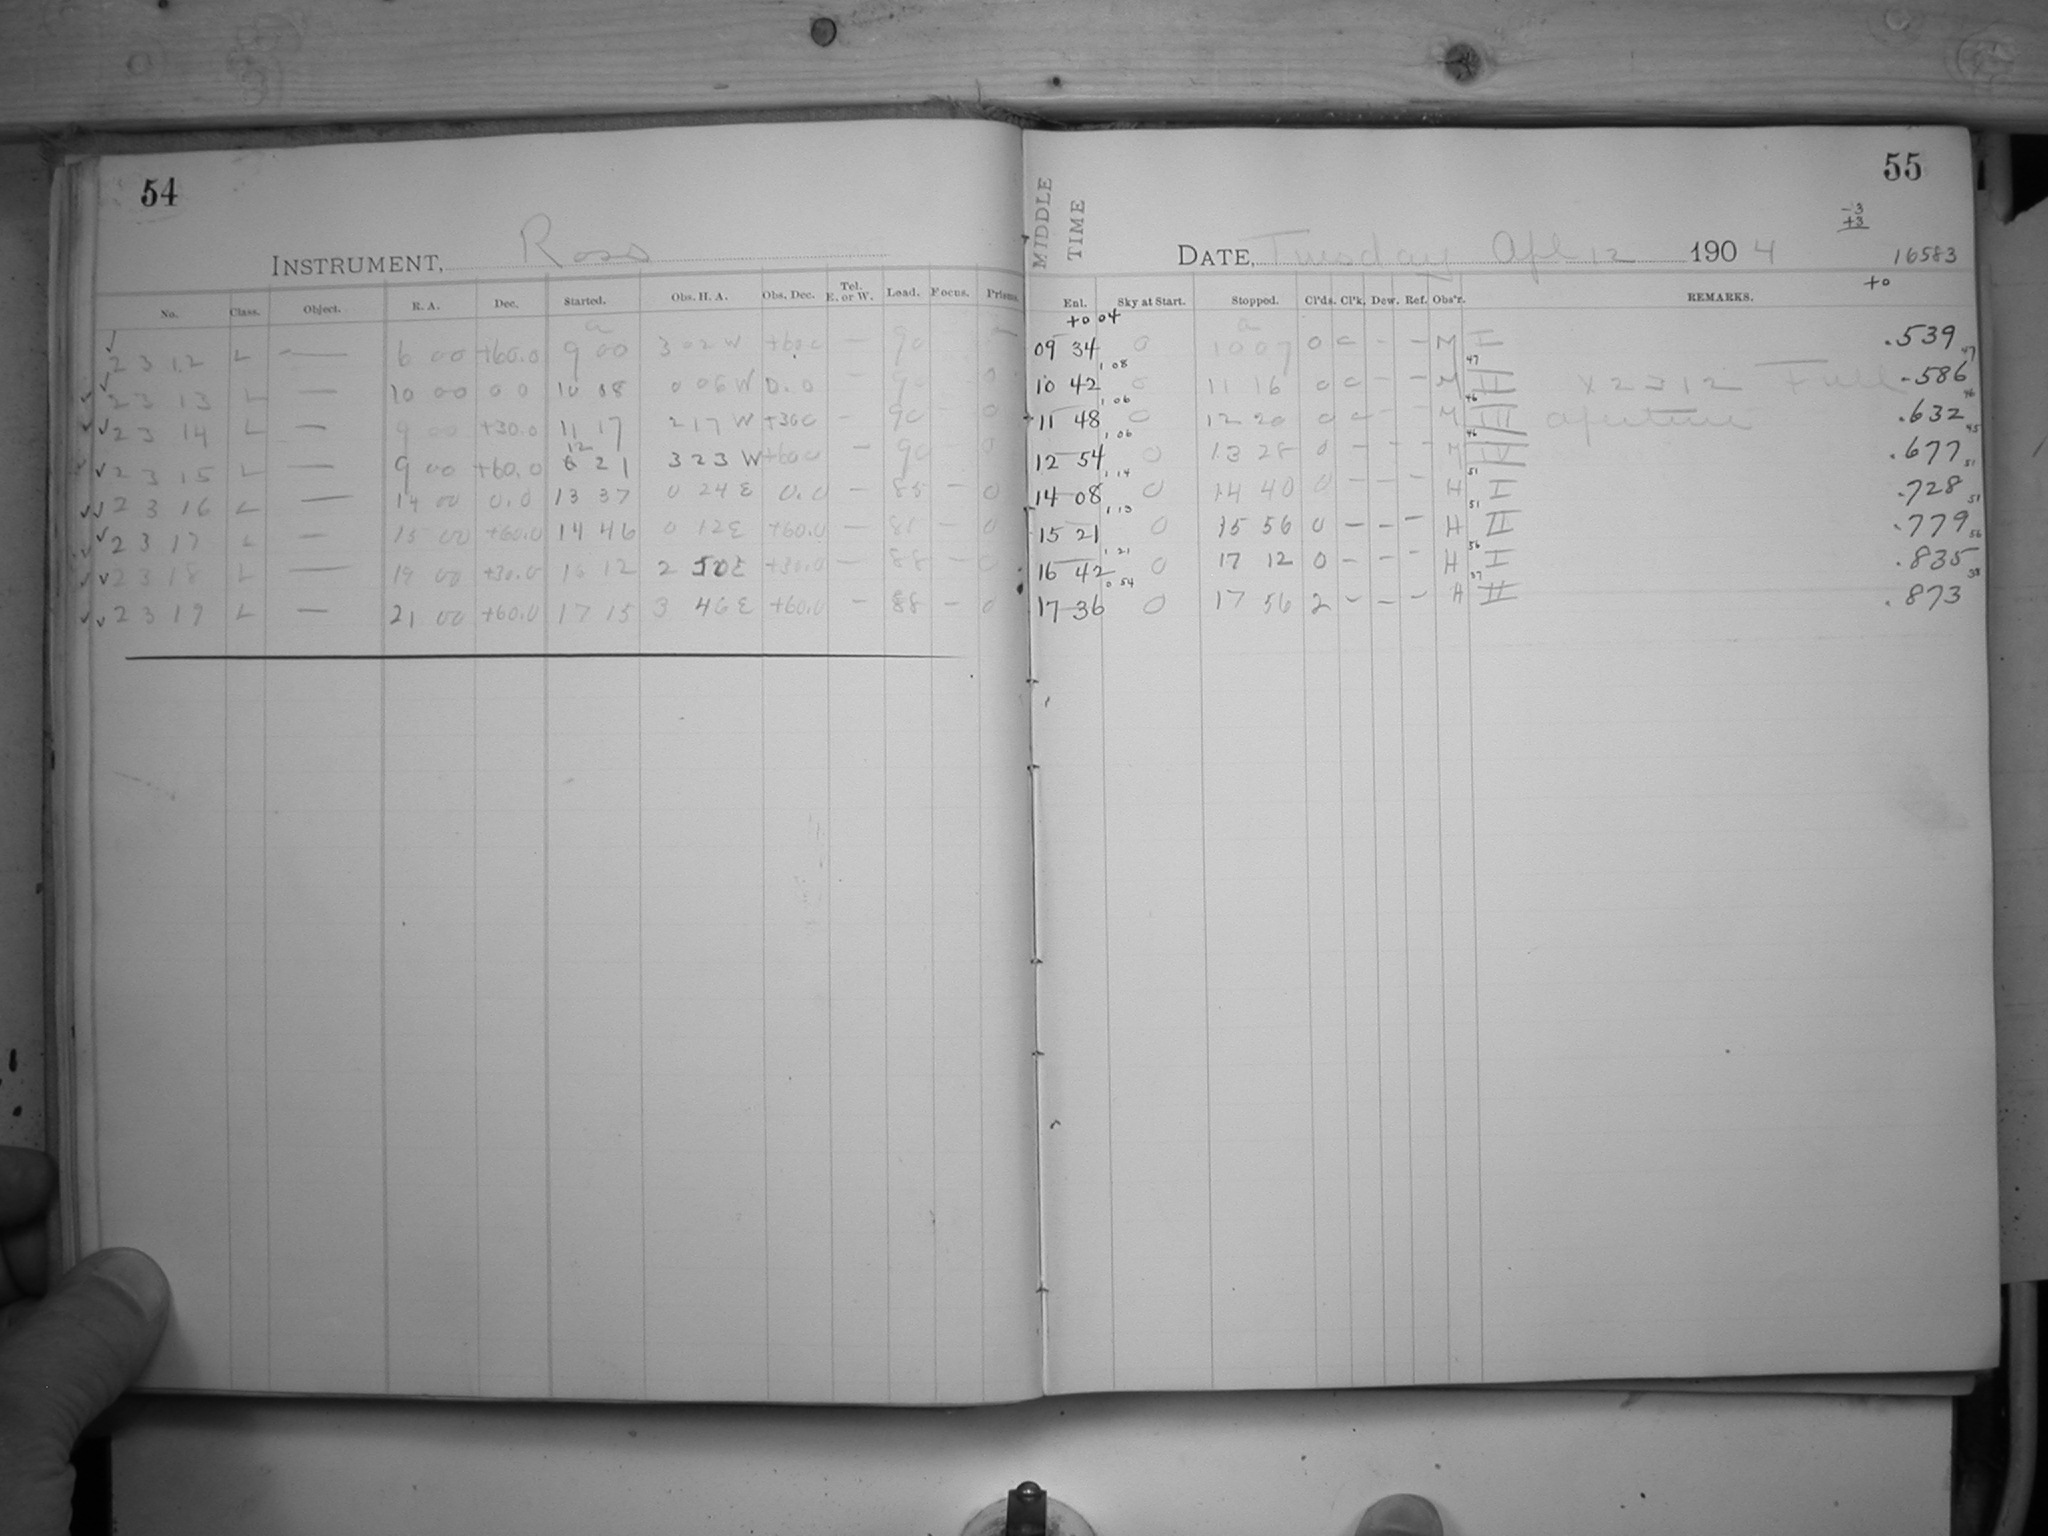 54
INSTRUMENT, Ross
No. Class. Object. R. A. Dec. Started. Obs. H. A. Obs. Dec. Tel. E. or W. Load. Focus. Prisms.
a
2312 L — 6 00 +60.0 9 00 3 02 W +60.0 — 90 —
2313 L — 10 00 0 0 10 08 0 06 W 0.0 — 90 - 0
2314 L — 9 00 +30.0 11 17 2 17 W +30.0 - 90 - 0
12
2315 L — 9 00 +60.0 21 3 23 W +60.0 — 90 - 0
2316 L — 14 00 0.0 13 37 0 24 E 0.0 — 85 — 0
2317 L — 15 00 +60.0 14 46 0 12 E +60.0 — 88 — 0
2318 L — 19 00 +30.0 16 12 2 50 E +30.0 — 88 — 0
2319 L — 21 00 +60.0 17 15 3 46 E +60.0 — 88 — 0
55
MIDDLE
TIME
-3
+3
DATE, Tuesday Apl 12 1904 16583
+0
Enl. Sky at Start. Stopped. Cl'ds. Cl'k. Dew. Ref. Obs'r. REMARKS.
+0 04
a
09 34 0 10 07 0 c - - M I .539
1 08 47 47
10 42 0 11 16 0 c - - M II X2312 Full .586
1 06 46 46
11 48 0 12 20 0 c - - M III aperture .632
1 06 46 45
12 54 0 13 28 0 - - - M IV .677
1 14 51 51
14 08 0 14 40 0 - - - H I .728
1 13 51 51
15 21 0 15 56 0 - - - H II .779
1 21 56 56
16 42 0 17 12 0 - - - H I .835
0 54 37 38
17 36 0 17 56 2 - - - H II .873